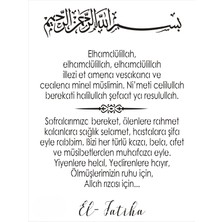 بسم الله الرحمن الرحيم
Elhamdülillah,
elhamdülillah, elhamdülillah
illezi et amena vesakana ve
cealena minel müslimin. Ni'meti celilullah
berekati halilullah şefaat ya resulullah.
Sofralarımıza bereket, ölenlere rahmet
kalanlara sağlık selamet, hastalara şifa
eyle rabbim. Bizi her türlü kaza, bela, afet
ve müsibetlerden muhafaza eyle.
Yiyenlere helal, Yedirenlere hayır,
Ölmüşlerimizin ruhu için,
Allah rızası için...
El-Fatiha